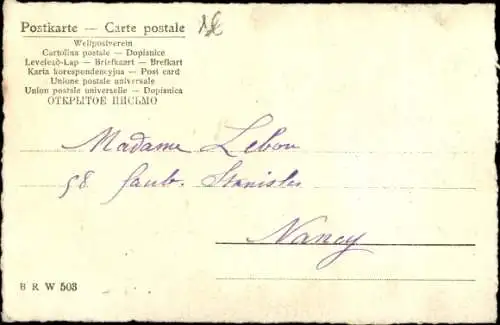 Postkarte — Carte postale
Weltpostverein
Cartolina postale — Dopisnice
Levelező-Lap — Briefkaart — Brefkort
Karta korespondencyjna — Post card
Unione postale universale
Union postale universelle — Dopisnica
ОТКРЫТОЕ ПИСЬМО
Madame Lebon
58 faub. Stanislas
Nancy
B R W 503